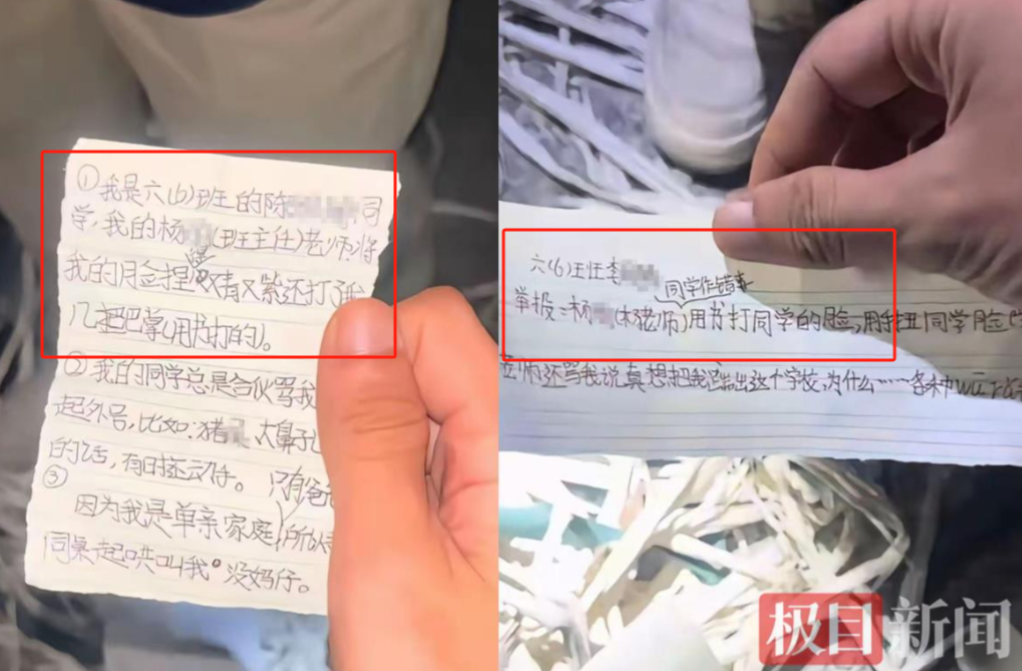 ①我是六(6)班的陈 同
学,我的杨 (班主任)老师将
我的脸捏 又青又紫还打了我
几把巴掌(用书打的)。
②我的同学总是合伙骂我
起外号,比如:猪 大鼻孔
的话,有时还动手。 只有爸
③
因为我是单亲家庭,所以
同桌起哄叫我"没妈仔。
六(6)班任李
同学作错事
举报:杨 (老师)用书打同学的脸,用手扭同学脸
老师还骂我说真想把我踢出这个学校,为什么……各种
极目新闻